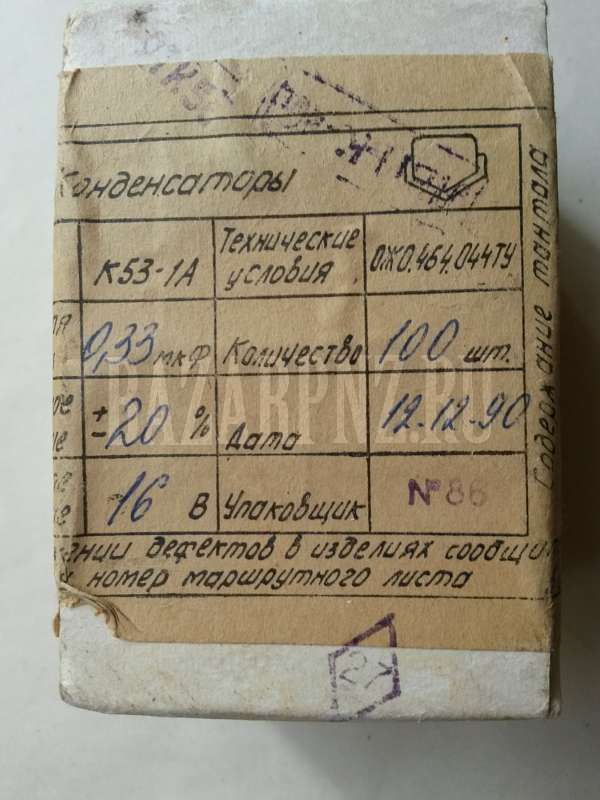 Конденсаторы
К53-1А Технические условия ОЖО.464.044ТУ
0,33 мкФ Количество 100 шт.
± 20 % Дата 12-12-90
16 В Упаковщик №86
дефектов в изделиях
номер маршрутного листа
Содержание тантала
BAZARPNZ.RU